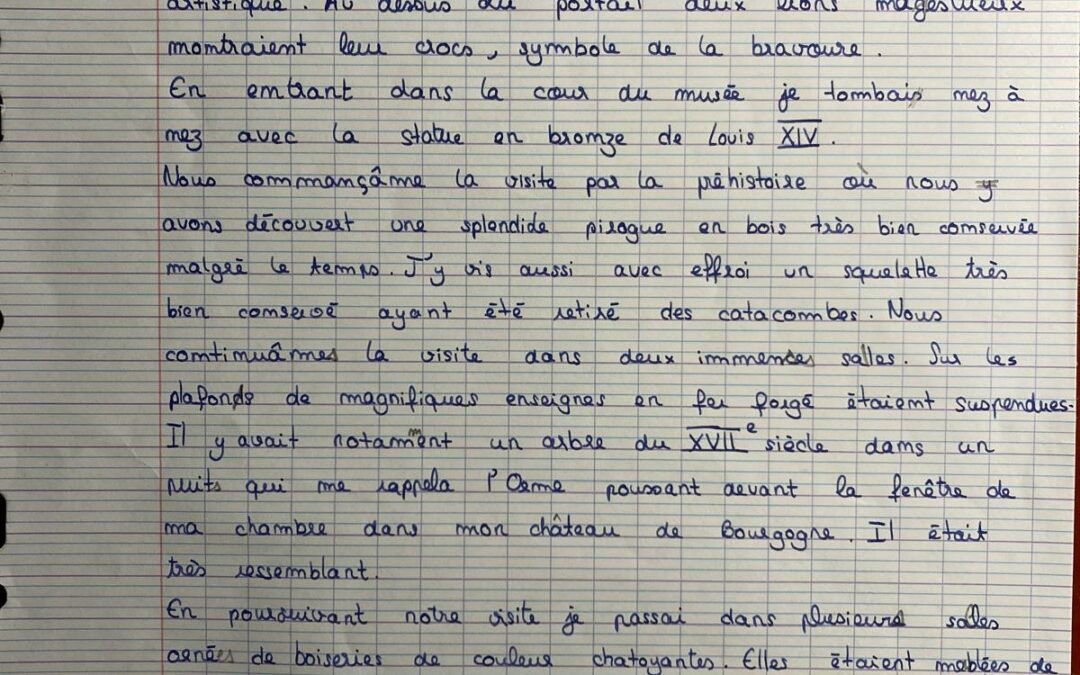 artistique. Au desous du portail deux lions magestueux
montraient leur crocs, symbole de la bravoure.
En entrant dans la cœur du musée je tombais nez à
nez avec la statue en bronze de Louis XIV.
Nous commançâme la visite par la préhistoire où nous y
avons découvert une splendide pirogue en bois très bien conservée
malgré le temps. J'y vis aussi avec effroi un squelette très
bien conservé ayant été retiré des catacombes. Nous
continuâmes la visite dans deux immences salles. Sur les
plafonds de magnifiques enseignes en fer forgé étaient suspendues.
Il y avait notamment un arbre du XVII e siècle dans un
puits qui me rappela l'Orme poussant devant la fenêtre de
ma chambre dans mon château de Bourgogne. Il était
très ressemblant.
En poursuivant notre visite je passai dans plusieurs salles
ornées de boiseries de couleur chatoyantes. Elles étaient meublées de